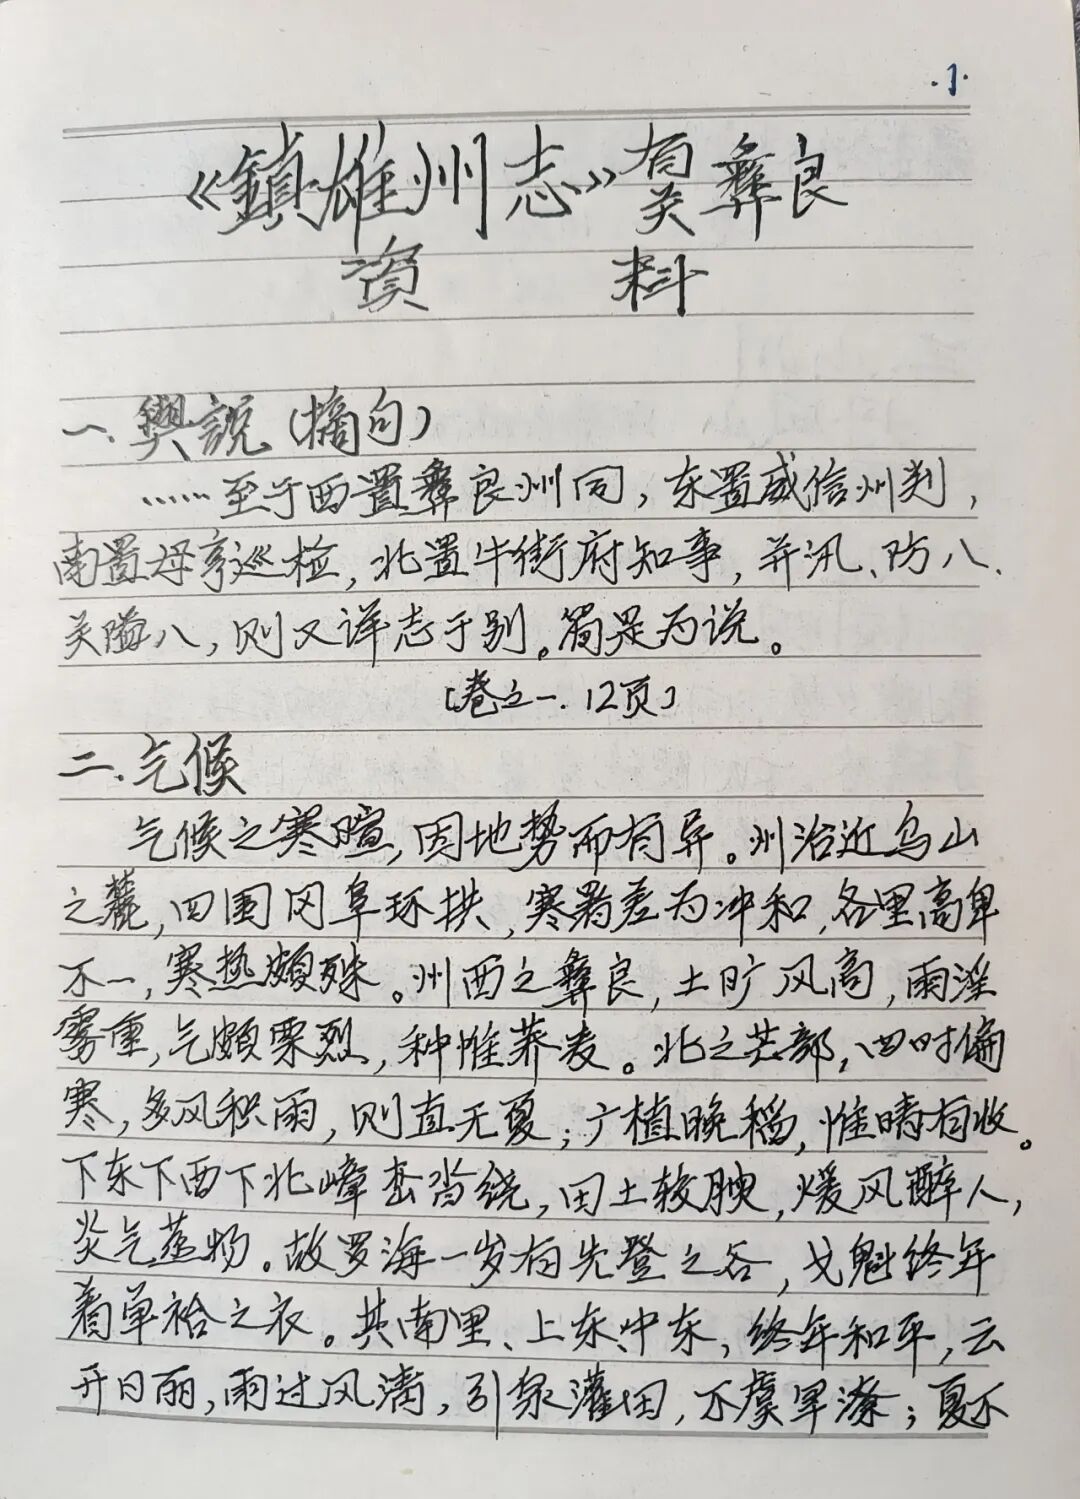 ·1·
《鎮雄州志》有关彝良
資料
一.輿說(摘句)
……至于西置彝良州同,东置威信州判,
南置母亨巡检,北置牛街府知事,并汛、防八、
关隘八,则又详志于别。简是为说。
〔卷之一.12页〕
二.气候
气候之寒暄,因地势而有异。州治近乌山
之麓,四围冈阜环拱,寒暑差为冲和,各里高卑
不一,寒热頗殊。州西之彝良,土旷风高,雨淫
雾重,气頗栗烈,种惟荞麦。北之芒部,四时偏
寒,多风积雨,则直无夏;广植晚稻,惟晴有收。
下东下西下北嶂峦沓绕,田土较腴,煖风醉人,
炎气蒸物。故罗海一岁有先登之谷,戈魁终年
着单袷之衣。其南里、上东、中东,终年和平,云
开日丽,雨过风清,引泉灌田,不虞旱潦;夏不